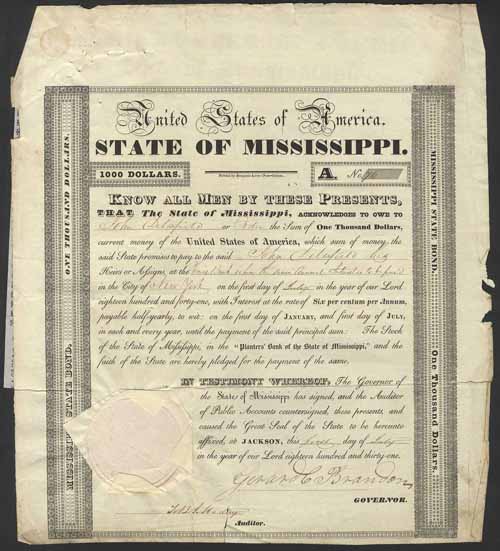 United States of America.
STATE OF MISSISSIPPI.
1000 DOLLARS.
A. No.
KNOW ALL MEN BY THESE PRESENTS,
THAT The State of Mississippi, ACKNOWLEDGES TO OWE TO
John Delafield or Order the Sum of One Thousand Dollars,
current money of the United States of America, which sum of money, the
said State promises to pay to the said John Delafield his
Heirs or Assigns, at the
in the City of New York on the first day of July in the year of our Lord
eighteen hundred and forty-one, with Interest at the rate of Six per centum per Annum,
payable half-yearly, to wit: on the first day of JANUARY, and first day of JULY,
in each and every year, until the payment of the said principal sum: The Stock
of the State of Mississippi, in the "Planters' Bank of the State of Mississippi," and the
faith of the State are hereby pledged for the payment of the same.
IN TESTIMONY WHEREOF, The Governor of
the State of Mississippi has signed, and the Auditor
of Public Accounts countersigned, these presents, and
caused the Great Seal of the State to be hereunto
affixed, at JACKSON, this day of July
in the year of our Lord eighteen hundred and thirty-one.
Gerard C Brandon
GOVERNOR.
Auditor.
ONE THOUSAND DOLLARS.
MISSISSIPPI STATE BOND.
MISSISSIPPI STATE BOND.
One Thousand Dollars.